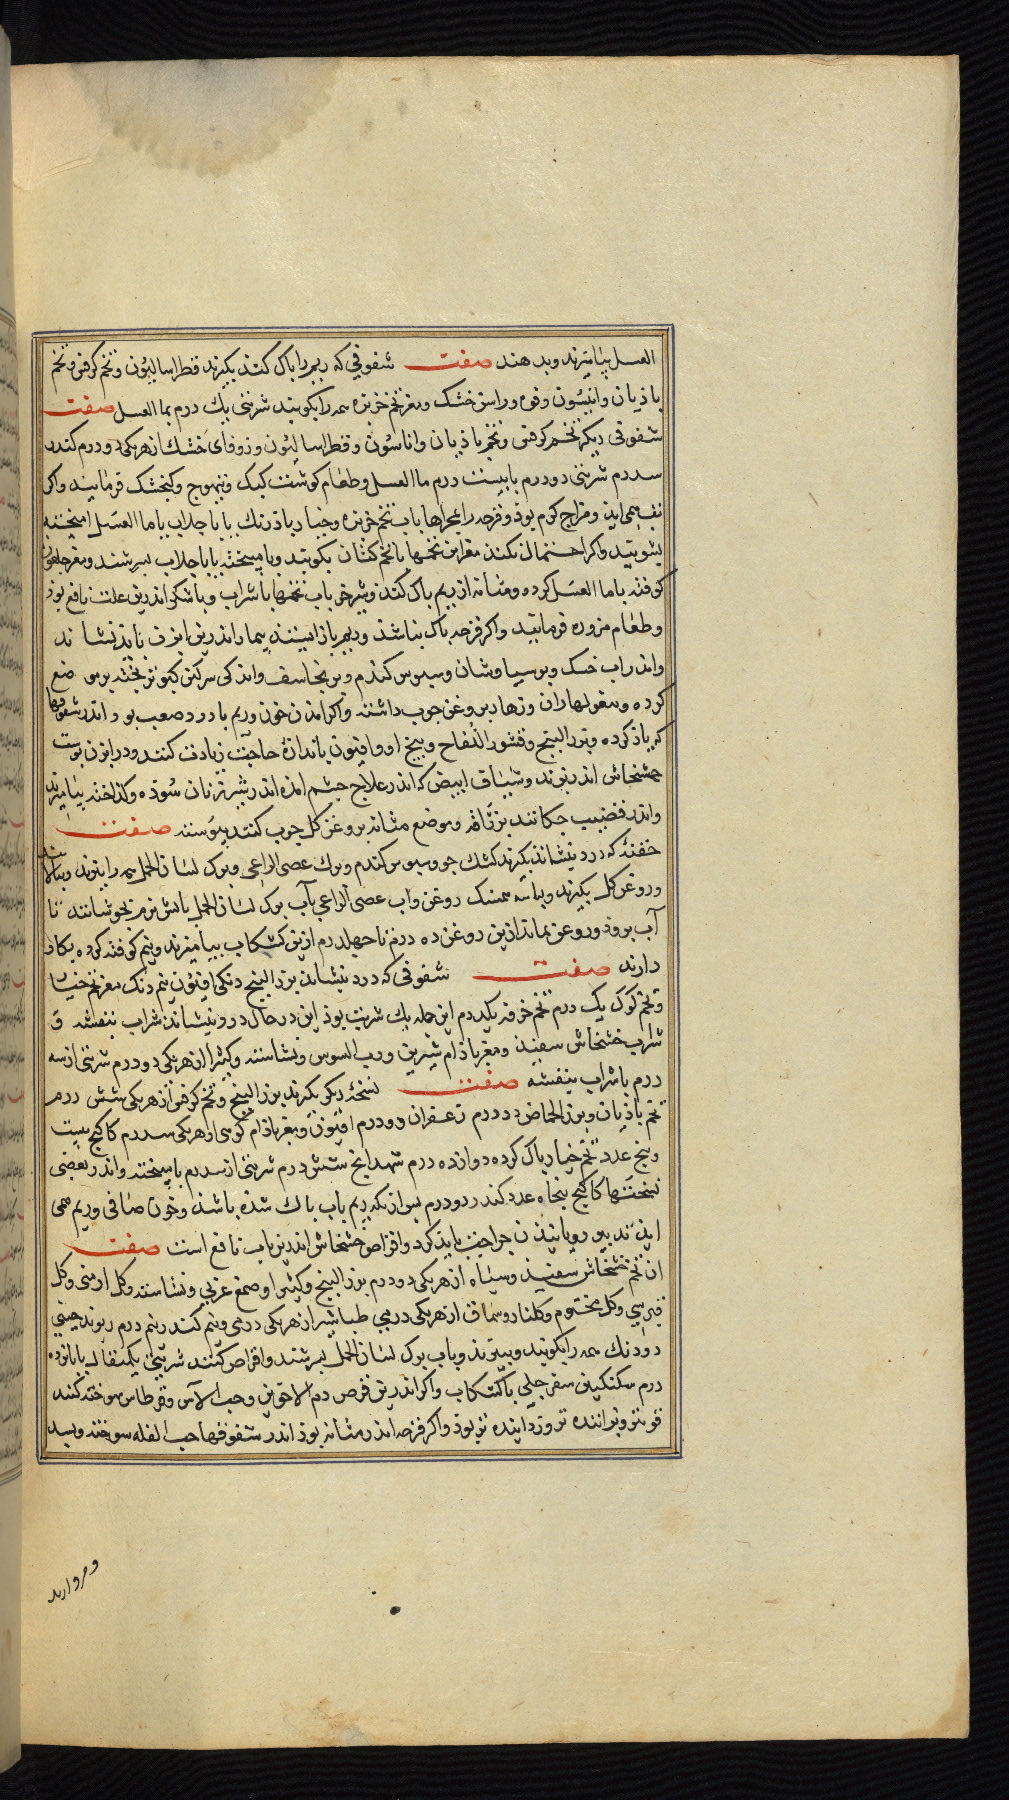 العسل بیامیزند و بدهند صفت شفوفی که ریم را پاک کند بکیرند قطراسالیون و تخم کرفس و تخم
باذیان و انیسون و فوه و راسن خشک و مغز تخم خربزه همه را بکوبند شربتی یک درم بما العسل صفت
شفوفی دیکر تخم کرفس و تخم باذیان و اناسون و قطراسالیون و زوفای خشک از هر یکی دو درم کندر
سه درم شربتی دو درم با بیست درم ما العسل و طعام کوشت کبک و تیهوج و کنجشک فرمایند واکر
تب همی اید و مزاج کرم بوذ و قرحه را بمجراها باب تخم خربزه و خیار باذرنک یا با جلاب یا ما العسل امیخته
بشویند واکر احتمال نکند مغز این تخمها با تخم کتان بکوبند و با میبخته یا با جلاب بسرشند و مغز جلغوزه
کوفته با ما العسل کرده و مثانه از ریم پاک کند و شیر خر باب تخمها با شراب و با شکر اندرین علت نافع بوذ
و طعام مزوره فرمایند واکر قرحه پاک نباشذ و ریم باز ایستد بیمار اندرین ابزن باید نشاند
واندر اب خسک و پرسیاوشان و سبوس کندم و برنجاسف واندکی سرکین کبوتر بخته بر موضع
کرده و مغولها ران و زهار بروغن جوب داشتند واکر امدن خون وریم با درد صعب بود اندر شفوفها
که یاذ کرده و بزر البنج و قشور اللفاح و بیخ او و افیون باندازهٔ حاجت زیادت کنند و در ابزن پوست
خشخاش اندر بزند و شیاف ابیض که اندر علاج چشم امده اندر شیر زنان سوده و کداخته بیامیزند
واندر قضیب جکانند بزراقه و موضع مثانه بروغن کل چوب کنند پیوسته صفت
حقنهٔ که درد بنشاند بکیرند کشک جو و سبوس کندم و برک عصی الراعی و برک لسان الحمل همه را بپزند و بپالایند
و روغن کل بکیرند و پیاسه همسنک روغن واب عصی الراعی یا آب برک لسان الحمل باتش نرم بجوشانند تا
آب برود و روغن بماند از این روغن ده درم تا چهل درم ازین کشکاب بیامیزند و نیم کوفته کرده بکار
دارند صفت شفوفی که درد بنشاند بزر البنج دنکی افیون نیم دنک مغز تخم خیار
و تخم کوک یک درم تخم خرفه یکدرم این جمله یک شربت بوذ این در حال درد بنشاند شراب بنفشه و
شراب خشخاش سفید و مغز باذام شیرین و رب السوس و نشاسته و کثیرا از هر یکی دو درم شربتی از سه
درم با شراب بنفشه صفت نسخهٔ دیکر بکیرند بزر البنج و تخم کرفس از هر یکی شش درم
تخم باذیان و بزر الحماض ده درم زعفران دو درم افیون و مغز باذام کوهی از هر یکی سه درم کاکنج بیست
و پنج عدد تخم خیار پاک کرده دوازده درم شهدانج شش درم شربتی از سه درم با میبخته واندر بعضی
نسختها کاکنج پنجاه عدد کندر دو درم پس ازنکه ریم باب پاک شذه باشذ و خون صافی و ریم همی
ایذ تدبیر رویانیذن جراحت بایذ کرد و اقراص خشخاش اندرین باب نافع است صفت
ان تخم خشخاش سفید و سیاه از هر یکی دو درم بزر البنج و کثیرا و صمغ عربی و نشاسته و کل ارمنی و کل
قبرسی و کل مختوم و کلنار و سماق از هر یکی درمی طباشیر از هر یکی درمی و نیم کندر نیم درم ریوند چینی
دو دنک همه را بکوبند و ببیزند و باب برک لسان الحمل بسرشند و اقراص کنند شربتی یکمثقال با پانزده
درم سکنکبین سفرجلی با کشکاب واکر اندرین قرص دم الاخوین و حب الآس و قرطاس سوخته کنند
قویتر و براننده تر و زداینده تر بوذ واکر قرحه اندر مثانه بوذ اندر شفوفها حب الفله سوخته و بسد
ومروارید